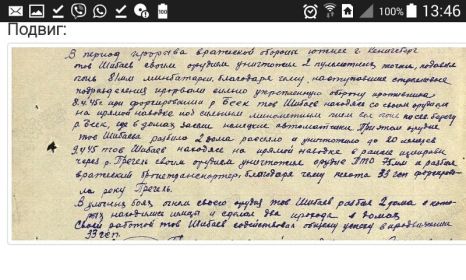 100% 13:46
Подвиг:
В период прорыва вражеской обороны южнее г. Кенигсберг
тов Шибаев своим орудием уничтожил 2 пулеметных точки, подавил
огонь 81мм минбатареи, благодаря чему наступающие стрелковые
подразделения прорвали сильно укрепленную оборону противника
8.4.45 при форсировании р Беек тов Шибаев находясь со своим орудием
на прямой наводке под сильным минометным огнем вел огонь после берегу
р. Беек, где в домах засели немецкие автоматчики. При этом орудие
тов Шибаева разбило 2 дома рассеяло и уничтожило до 20 немцев
9.4.45 тов Шибаев находясь на прямой наводке в районе
через р. Прегель своим орудием уничтожил орудие ПТО 75мм и разбил
вражеский бронетранспортер, благодаря чему пехота 33 гсп форсировала
реку Прегель.
В уличных боях огнем своего орудия тов Шибаев разбил 2 дома в которых
находились немцы и сделал два прохода в домах
Своей работой тов Шибаев содействовал общему успеху в продвижении
33 гсп.